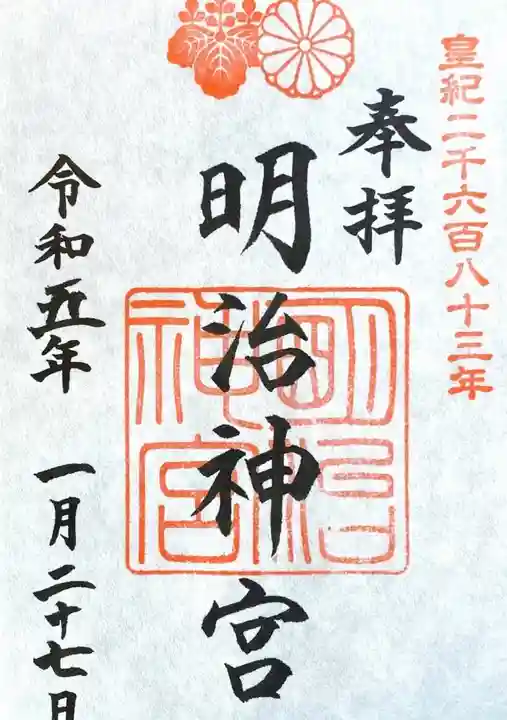 皇紀二千六百八十三年
奉拝
明治神宮
明治神宮
令和五年 一月二十七日